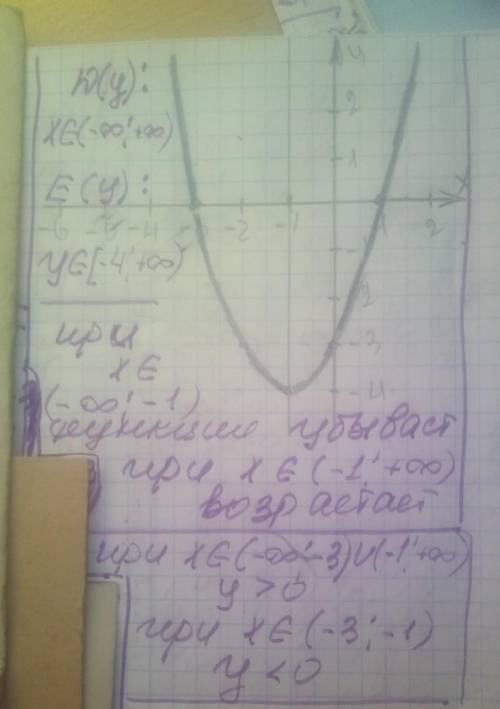 D(y):
x∈(-∞;+∞)
E(y):
y∈[-4;+∞)
при
x∈
(-∞;-1)
функция убывает
при x∈(-1;+∞)
возрастает
при x∈(-∞;-3)∪(-1;+∞)
y>0
при x∈(-3;-1)
y<0
4
2
1
x
-6 -4 -3 -2 -1 1 2
-1
2
-3
-4